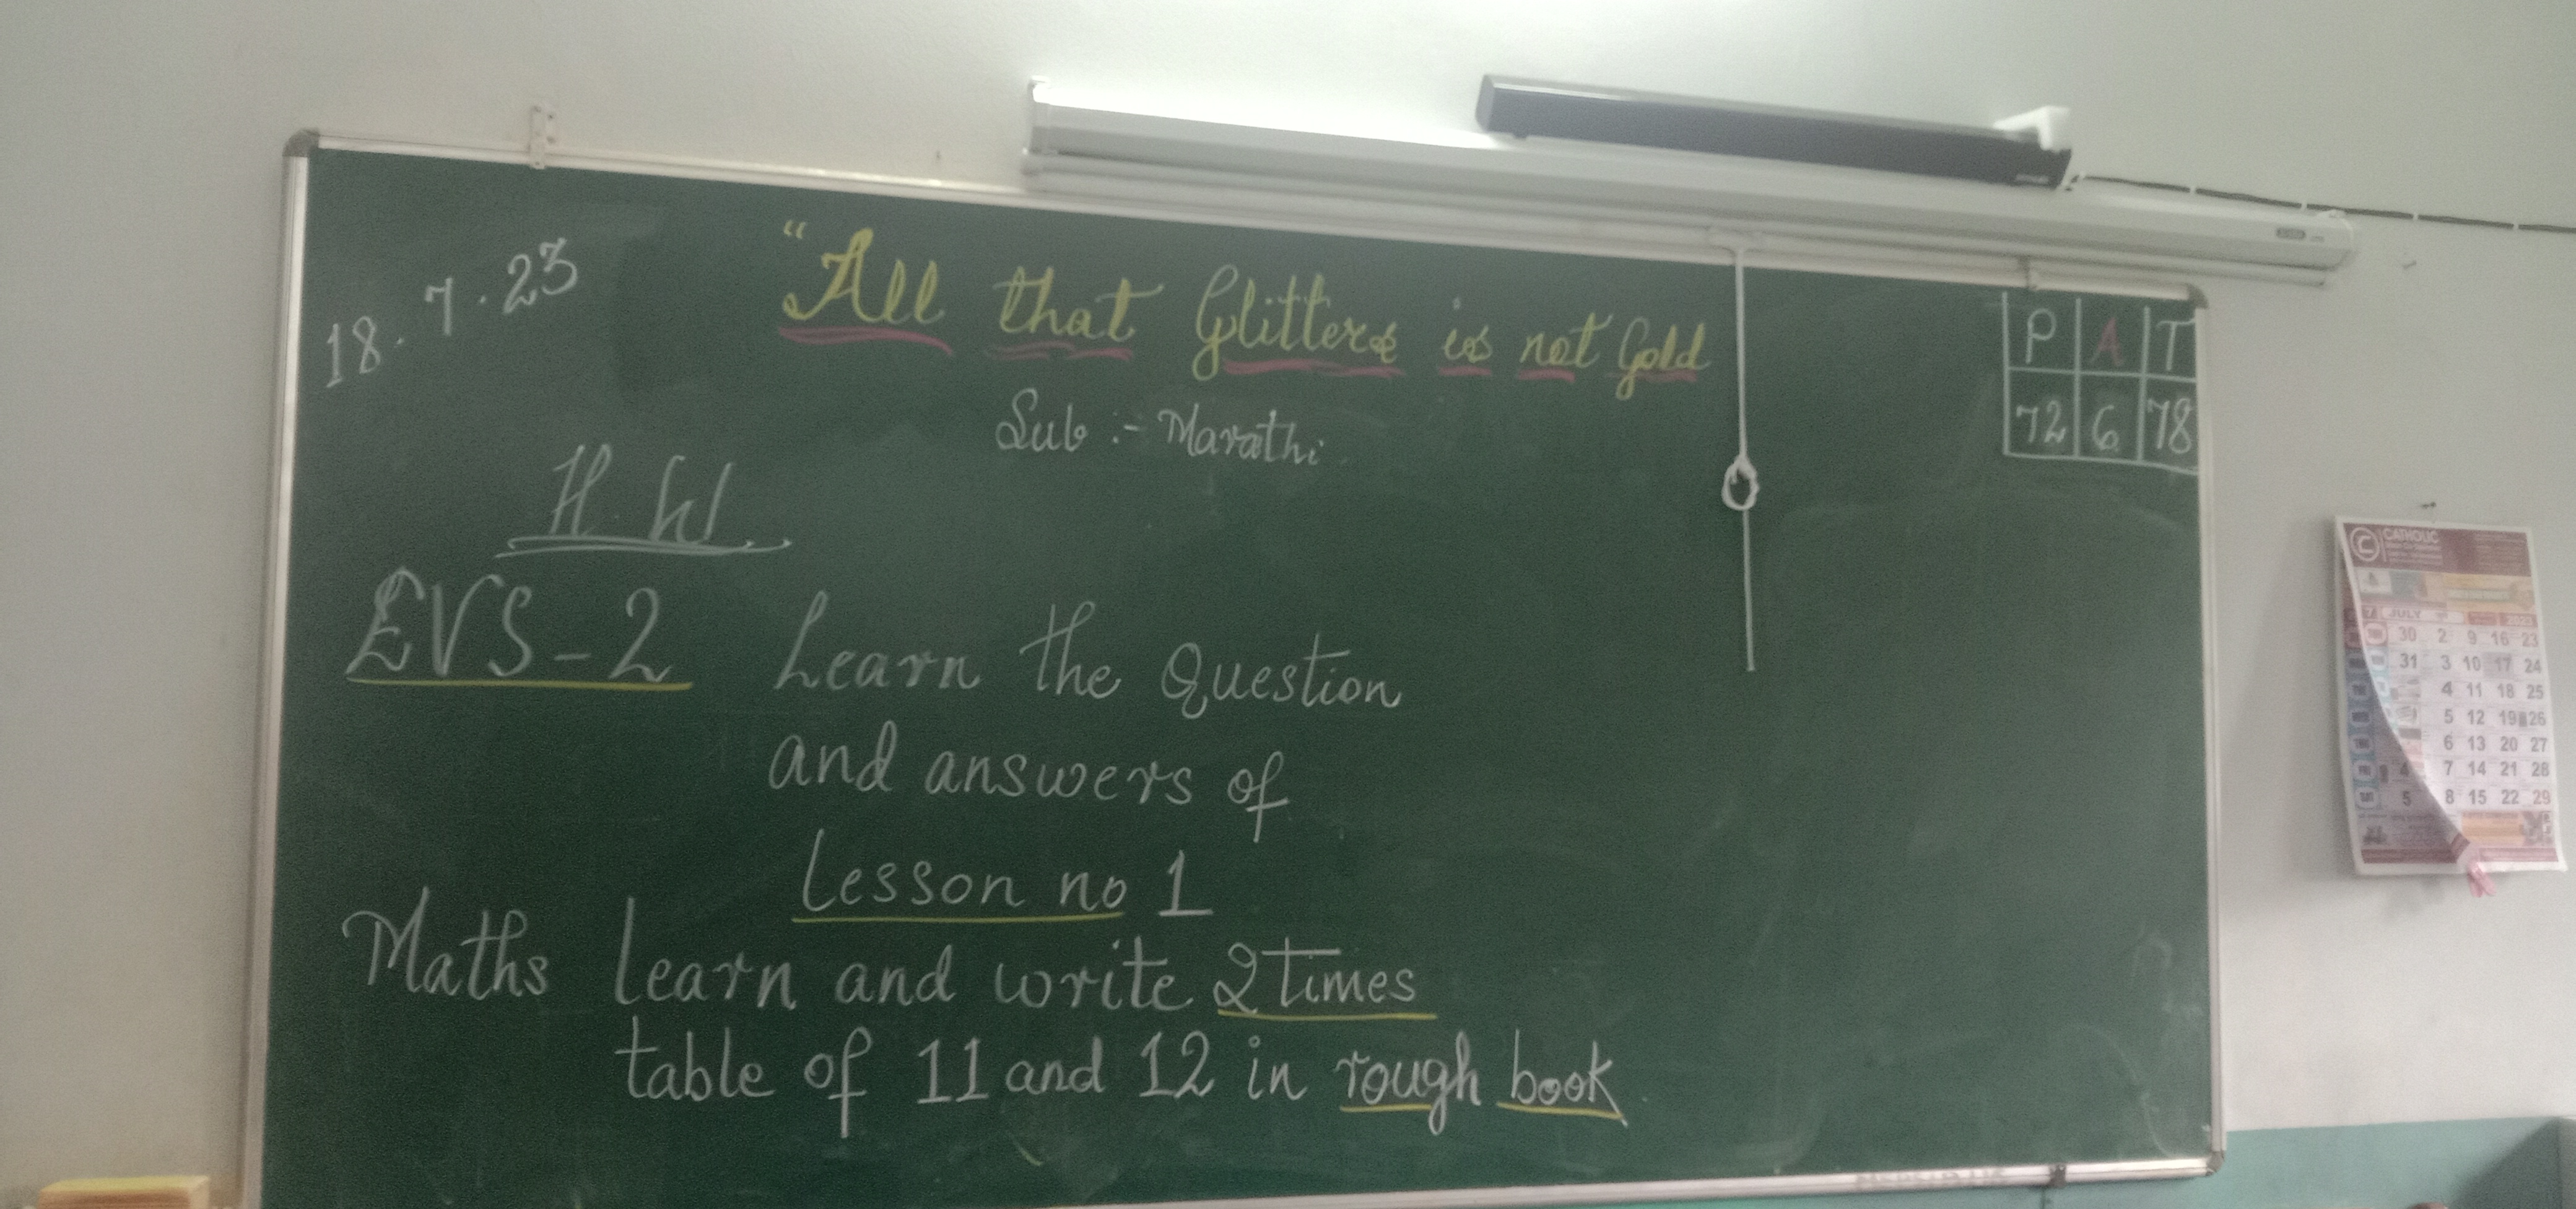 18.7.23
"All that Glitters is not Gold
P A T
72 6 78
Sub :- Marathi
H.W
EVS-2 Learn the Question
and answers of
Lesson no 1
Maths Learn and write 2 times
table of 11 and 12 in rough book
CATHOLIC
7 JULY 2023
30 2 9 16 23
31 3 10 17 24
4 11 18 25
5 12 19 26
6 13 20 27
4 7 14 21 28
5 8 15 22 29